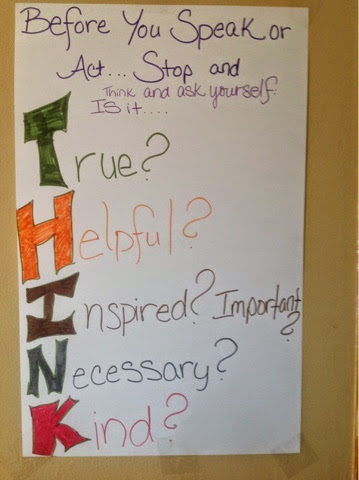 Before You Speak or
Act... Stop and
Think and ask yourself.
Is it....
True?
Helpful?
Inspired? Important?
Necessary?
Kind?